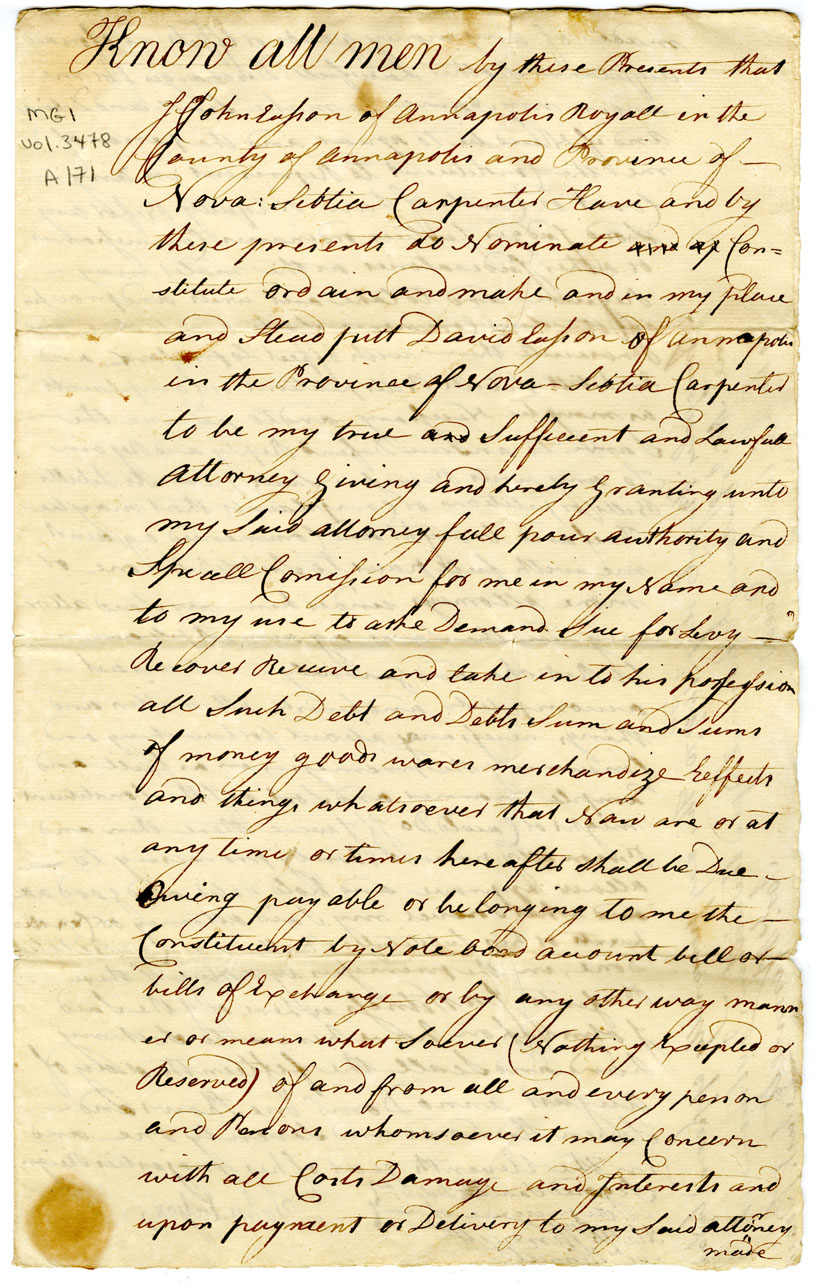 Know all men by these Presents that
I John Easson of Annapolis Royall in the
County of Annapolis and Province of —
Nova: Scotia Carpenter Have and by
these presents do Nominate Con=
stitute ordain and make and in my place
and Stead putt David Easson of Annapolis
in the Province of Nova – Scotia Carpenter
to be my true and Sufficient and Lawfull
attorney Giving and hereby Granting unto
my Said attorney full pour authority and
Speciall Comission for me in my Name and
to my use to aske Demand Sue for Levy —
Recover Receive and take in to his possession
all Such Debt and Debts Sum and Sums
of money goods wares merchandize Eeffects
and things whatsoever that Naw are or at
any time or times hereafter shall be Due –
Owing payable or belonging to me the –
Constituent by Note bond account bill or –
bills of Exchange or by any other way mann
er or means what Soever (Nothing Excepted or
Reserved) of and from all and every person
and Persons whomsoever it may Concern
with all Costs Damage and Interests and
upon payment or Delivery to my Said attorney
made
MG1
Vol. 3478
A171